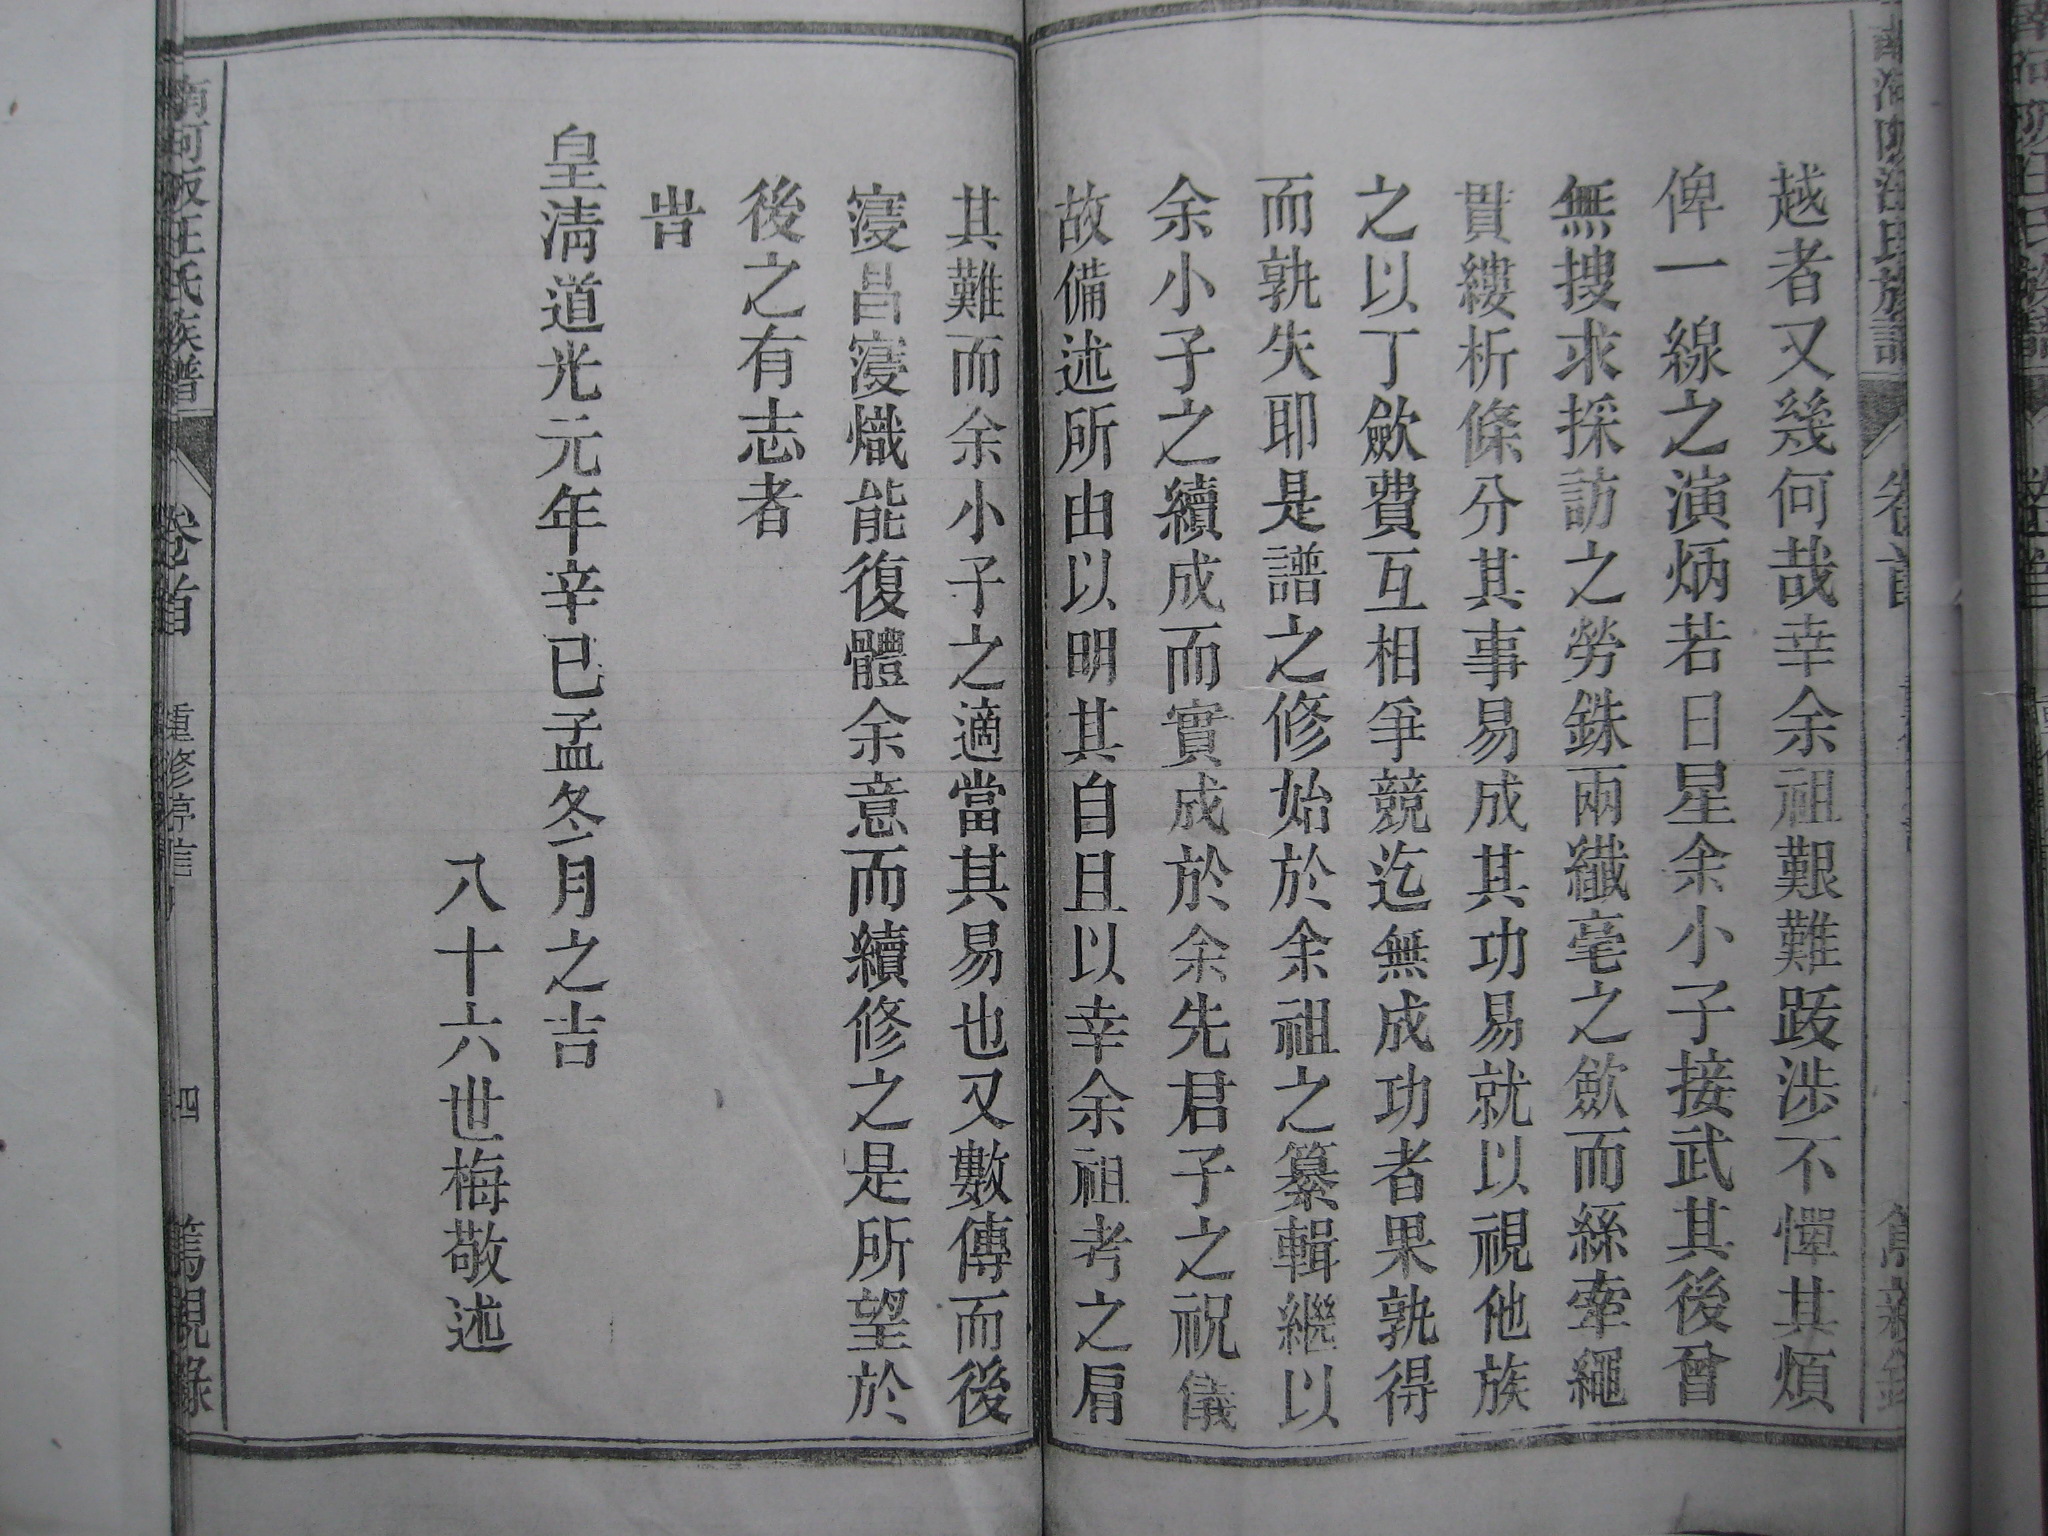 越者又幾何哉幸余祖艱難跋涉不憚其煩
俾一線之演炳若日星余小子接武其後曾
無搜求採訪之勞銖兩纖毫之斂而絲牽繩
貫縷析條分其事易成其功易就以視他族
之以丁斂費互相爭競迄無成功者果孰得
而孰失耶是譜之修始於余祖之纂輯繼以
余小子之續成而實成於余先君子之祝儀
故備述所由以明其自且以幸余祖考之肩
其難而余小子之適當其易也又數傳而後
寖昌寖熾能復體余意而續修之是所望於
後之有志者
旹
皇清道光元年辛巳孟冬月之吉
八十六世梅敬述
河阪汪氏族譜 卷首 重修 四